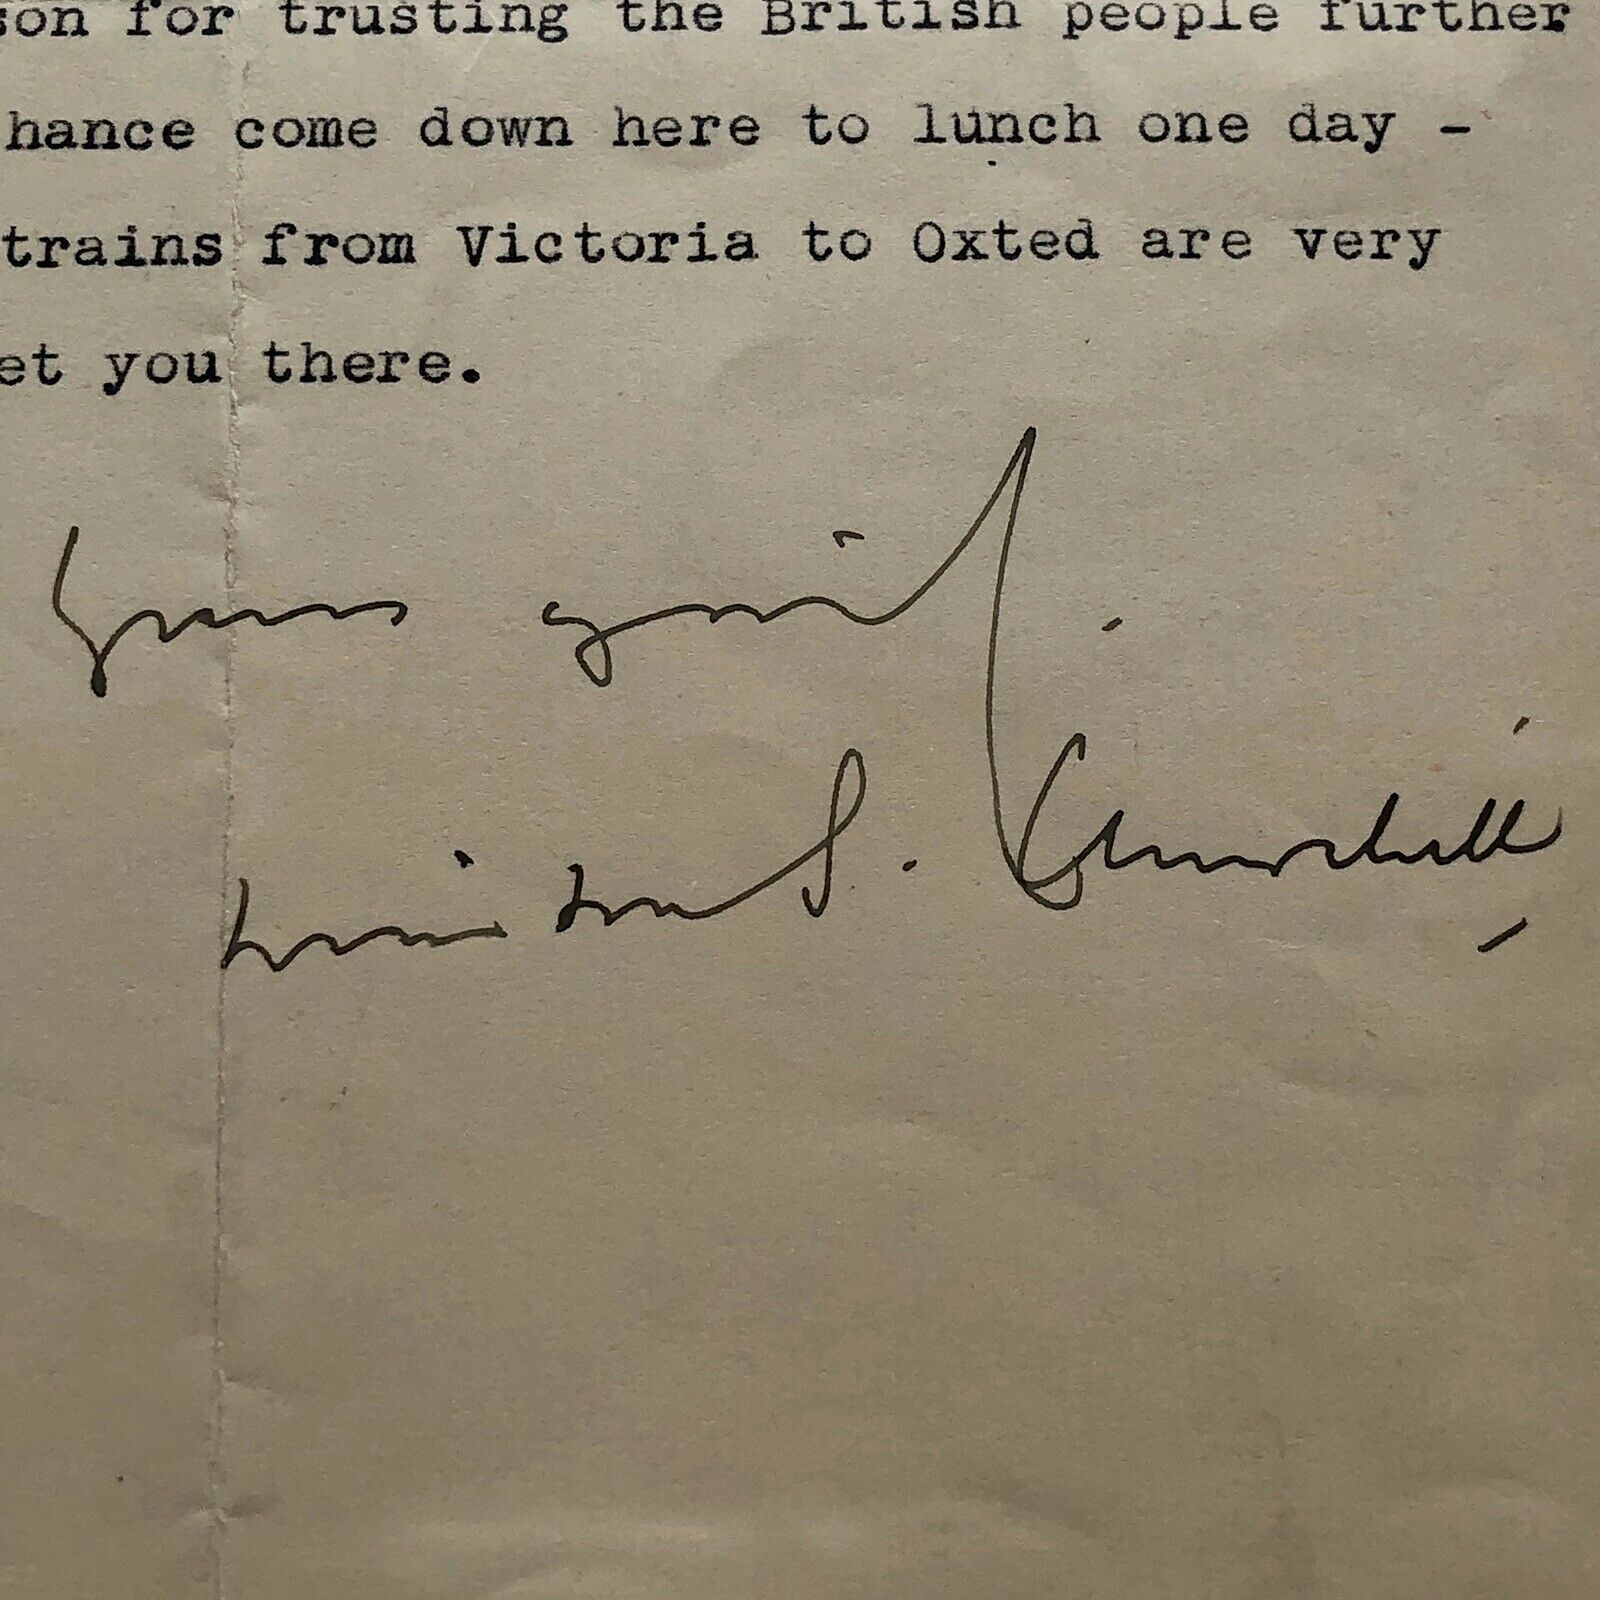 son for trusting the British people further
hance come down here to lunch one day -
trains from Victoria to Oxted are very
et you there.
Yours
Winston S. Churchill